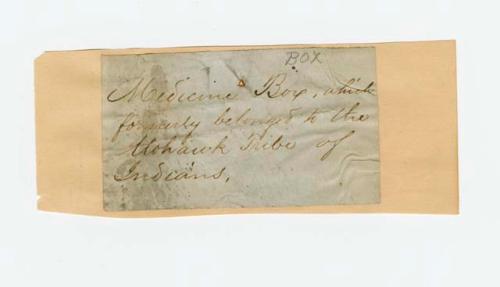 BOX
Medicine Box, which
formerly belonged to the
Mohawk Tribe of
Indians.